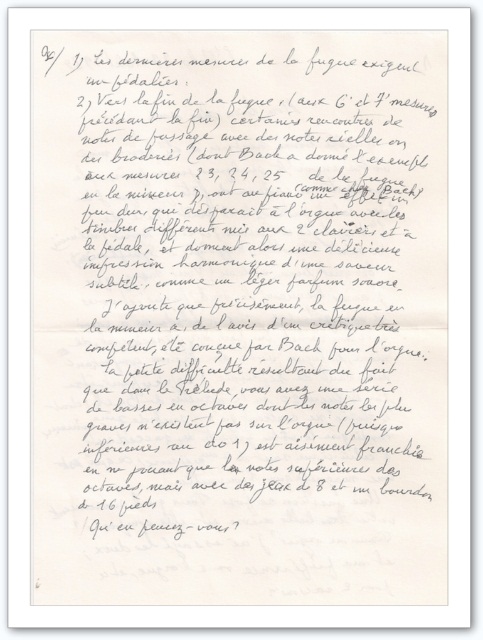 1) Les dernières mesures de la fugue exigent
un pédalier.
2) Vers la fin de la fugue, (aux 6e et 7e mesures
précédant la fin) certaines rencontres de
notes de passage avec des notes réelles ou
des broderies (dont Bach a donné l'exemple
aux mesures 23, 24, 25 de la fugue
en la mineur), ont au piano un effet un
(comme chez Bach)
peu dur qui disparaît à l'orgue avec les
timbres différents mis aux 2 claviers et à
la pédale, et donnent alors une délicieuse
impression harmonique d'une saveur
subtile, comme un léger parfum sonore.
J'ajoute que précisément, la fugue en
la mineur a, de l'avis d'un critique très
compétent, été conçue par Bach pour l'orgue.
La petite difficulté résultant du fait
que dans le Prélude, vous avez une série
de basses en octaves dont les notes les plus
graves n'existent pas sur l'orgue (puisque
inférieures au do 1) est aisément franchie
en ne jouant que les notes supérieures des
octaves, mais avec des jeux de 8 et un bourdon
de 16 pieds
Qu'en pensez-vous?